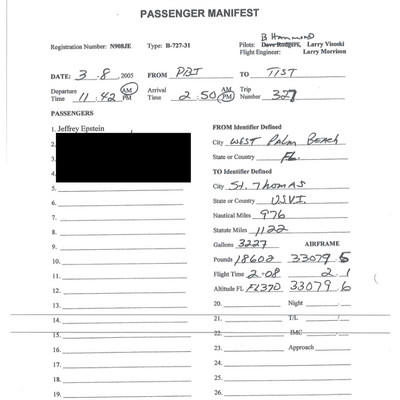 PASSENGER MANIFEST
B Hammond
Registration Number: N908JE Type: B-727-31 Pilots: Dave Rodgers, Larry Visoski
Flight Engineer: Larry Morrison
DATE: 3.8, 2005 FROM PBI TO TIST
Departure Time 11:42 AM PM Arrival Time 2:50 AM PM Trip Number 327
PASSENGERS
1. Jeffrey Epstein
2.
3.
4.
5.
6.
7.
8.
9.
10.
11.
12.
13.
14.
15.
16.
17.
18.
19.
FROM Identifier Defined
City West Palm Beach
State or Country FL.
TO Identifier Defined
City St. Thomas
State or Country U.S.V.I.
Nautical Miles 976
Statute Miles 1122
Gallons 3227 AIRFRAME
Pounds 18602 33079.5
Flight Time 2-08 2.1
Altitude FL FL370 33079.6
20. Night
21. T/L /
22. IMC
23. Approach
24.
25.
26.